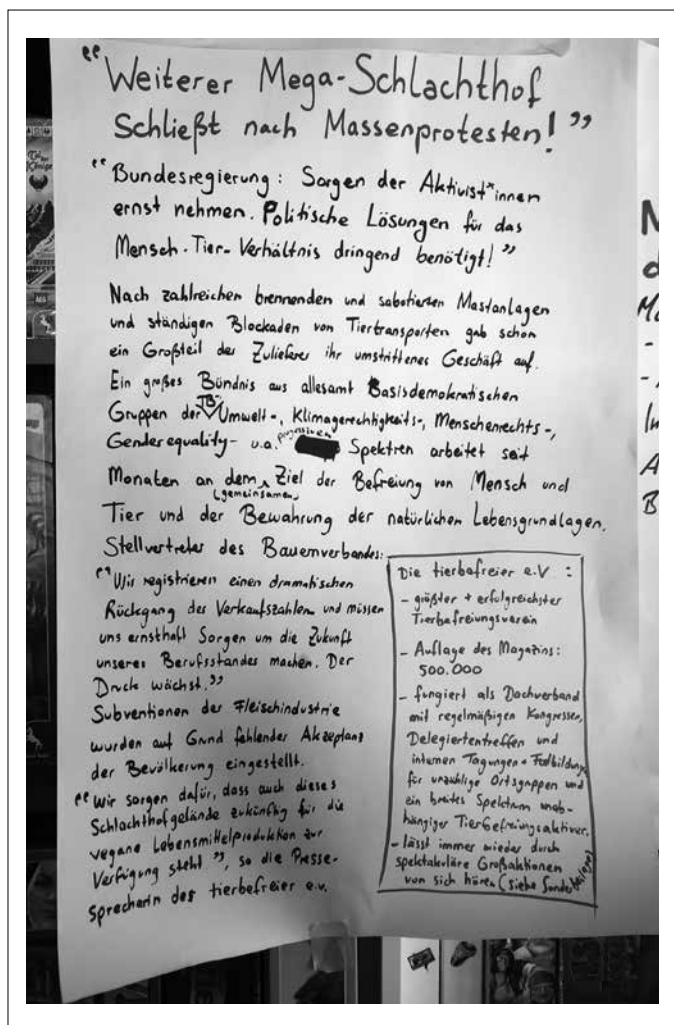 "Weiterer Mega-Schlachthof
Schließt nach Massenprotesten!"
"Bundesregierung: Sorgen der Aktivist*innen
ernst nehmen. Politische Lösungen für das
Mensch-Tier-Verhältnis dringend benötigt!"
Nach zahlreichen brennenden und sabotierten Mastanlagen
und ständigen Blockaden von Tiertransporten gab schon
ein Großteil der Zulieferer ihr umstrittenes Geschäft auf.
Ein großes Bündnis aus allesamt Basisdemokratischen
Gruppen der TB-, Umwelt-, Klimagerechtigkeits-, Menschenrechts-,
Genderequality- u.a. progressiven Spektren arbeitet seit
Monaten an dem gemeinsamen Ziel der Befreiung von Mensch und
Tier und der Bewahrung der natürlichen Lebensgrundlagen.
Stellvertreter des Bauernverbandes:
"Wir registrieren einen dramatischen
Rückgang der Verkaufszahlen und müssen
uns ernsthaft Sorgen um die Zukunft
unseres Berufsstandes machen. Der
Druck wächst."
Subventionen der Fleischindustrie
wurden auf Grund fehlender Akzeptanz
der Bevölkerung eingestellt.
"Wir sorgen dafür, dass auch dieses
Schlachthofgelände zukünftig für die
vegane Lebensmittelproduktion zur
Verfügung steht", so die Presse-
sprecherin des tierbefreier e.V.
Die tierbefreier e.V.:
- größter + erfolgreichster
Tierbefreiungsverein
- Auflage des Magazins:
500.000
- fungiert als Dachverband
mit regelmäßigen Kongressen,
Delegiertentreffen und
internen Tagungen + Fortbildungen
für unzählige Ortsgruppen und
ein breites Spektrum unab-
hängiger Tierbefreiungsaktiver.
- lässt immer wieder durch
spektakuläre Großaktionen
von sich hören (siehe Sonderbeilagen)